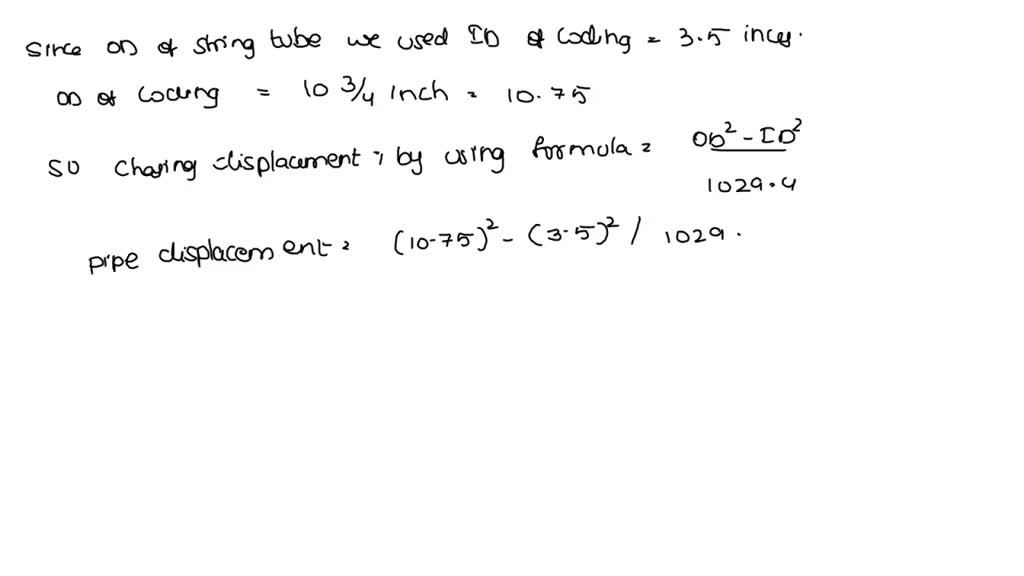 Since OD of string tube we used ID of Coding = 3.5 inces.
OD of Coding = 10 3/4 inch = 10.75
So Chasing displacement, by using formula = OD² - ID² / 1029.4
pipe displacement = (10.75)² - (3.5)² / 1029.